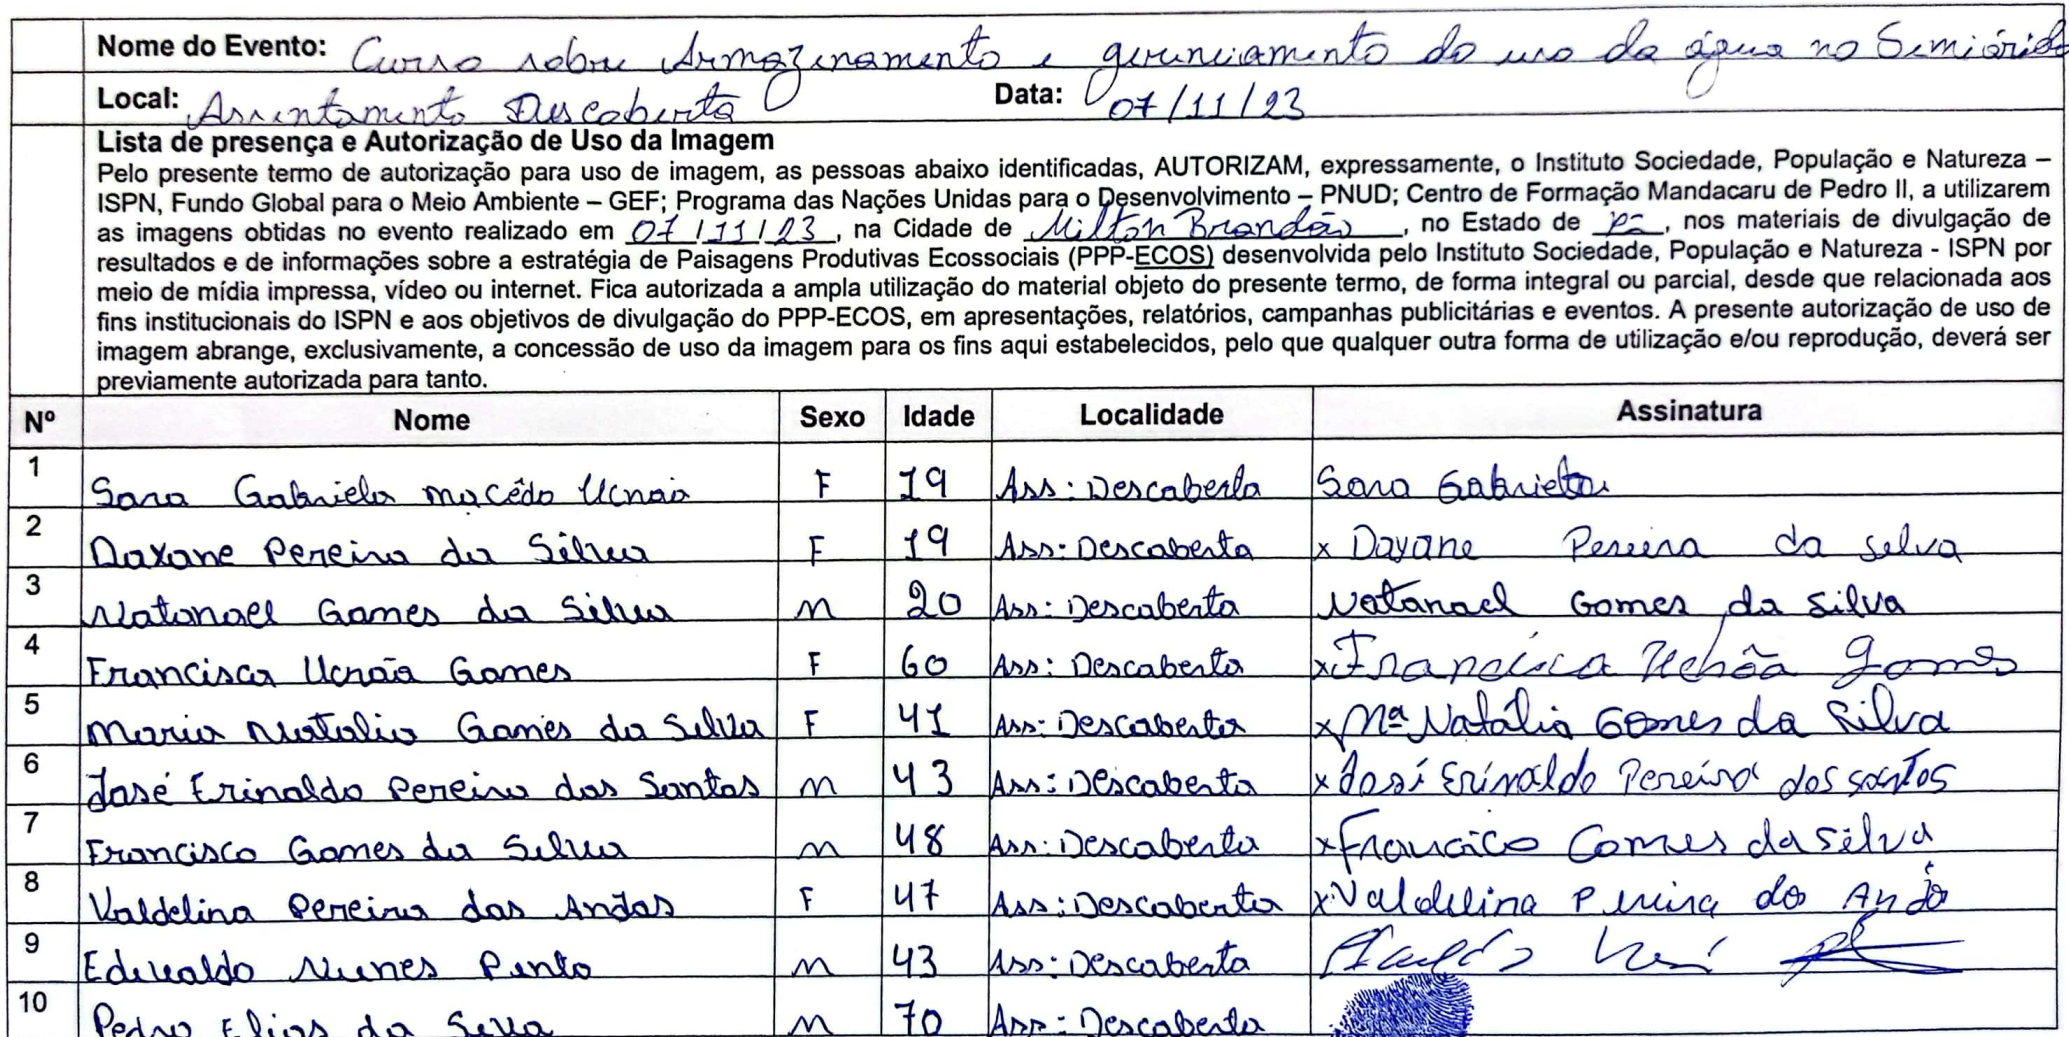 Nome do Evento: Curso sobre Armazenamento e gerenciamento do uso da água no Semiárido
Local: Assentamento Descoberta Data: 07/11/23
Lista de presença e Autorização de Uso da Imagem
Pelo presente termo de autorização para uso de imagem, as pessoas abaixo identificadas, AUTORIZAM, expressamente, o Instituto Sociedade, População e Natureza –
ISPN, Fundo Global para o Meio Ambiente – GEF; Programa das Nações Unidas para o Desenvolvimento – PNUD; Centro de Formação Mandacaru de Pedro II, a utilizarem
as imagens obtidas no evento realizado em 07/11/23, na Cidade de Milton Brandão, no Estado de Pi, nos materiais de divulgação de
resultados e de informações sobre a estratégia de Paisagens Produtivas Ecossociais (PPP-ECOS) desenvolvida pelo Instituto Sociedade, População e Natureza - ISPN por
meio de mídia impressa, vídeo ou internet. Fica autorizada a ampla utilização do material objeto do presente termo, de forma integral ou parcial, desde que relacionada aos
fins institucionais do ISPN e aos objetivos de divulgação do PPP-ECOS, em apresentações, relatórios, campanhas publicitárias e eventos. A presente autorização de uso de
imagem abrange, exclusivamente, a concessão de uso da imagem para os fins aqui estabelecidos, pelo que qualquer outra forma de utilização e/ou reprodução, deverá ser
previamente autorizada para tanto.
Nº Nome Sexo Idade Localidade Assinatura
1 Sara Gabriela macêdo Ucnoa F 19 Ass: Descoberta Sara Gabriela
2 Daxane Pereira da Silva F 19 Ass: Descoberta x Dayane Pereira da Selva
3 Natanael Gomes da Silva m 20 Ass: Descoberta Natanael Gomes da Silva
4 Francisca Ucnoa Gomes F 60 Ass: Descoberta x Francisca Uchôa Gomes
5 Maria Natalia Gomes da Silva F 41 Ass: Descoberta x Mª Natália Gomes da Silva
6 José Erinaldo Pereira dos Santos m 43 Ass: Descoberta x José Erinaldo Pereira dos santos
7 Francisco Gomes da Silva m 48 Ass: Descoberta x Francico Gomes da Silva
8 Valdelina Pereira dos Anjos F 47 Ass: Descoberta x Valdelina Pereira do Anjo
9 Edivaldo Nunes Pinto m 43 Ass: Descoberta
10 Pedro Elias da Silva m 70 Ass: Descoberta